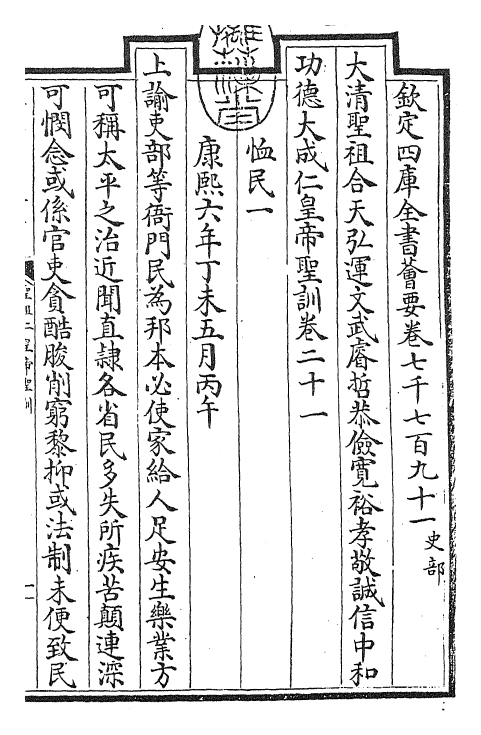 欽定四庫全書薈要卷七千七百九十一 史部
大清聖祖合天弘運文武睿哲恭儉寬裕孝敬誠信中和
功德大成仁皇帝聖訓卷二十一
恤民一
康熙六年丁未五月丙午
上諭吏部等衙門民為邦本必使家給人足安生樂業方
可稱太平之治近聞直隷各省民多失所疾苦顛連深
可憫念或係官吏貪酷朘削窮黎抑或法制未便致民